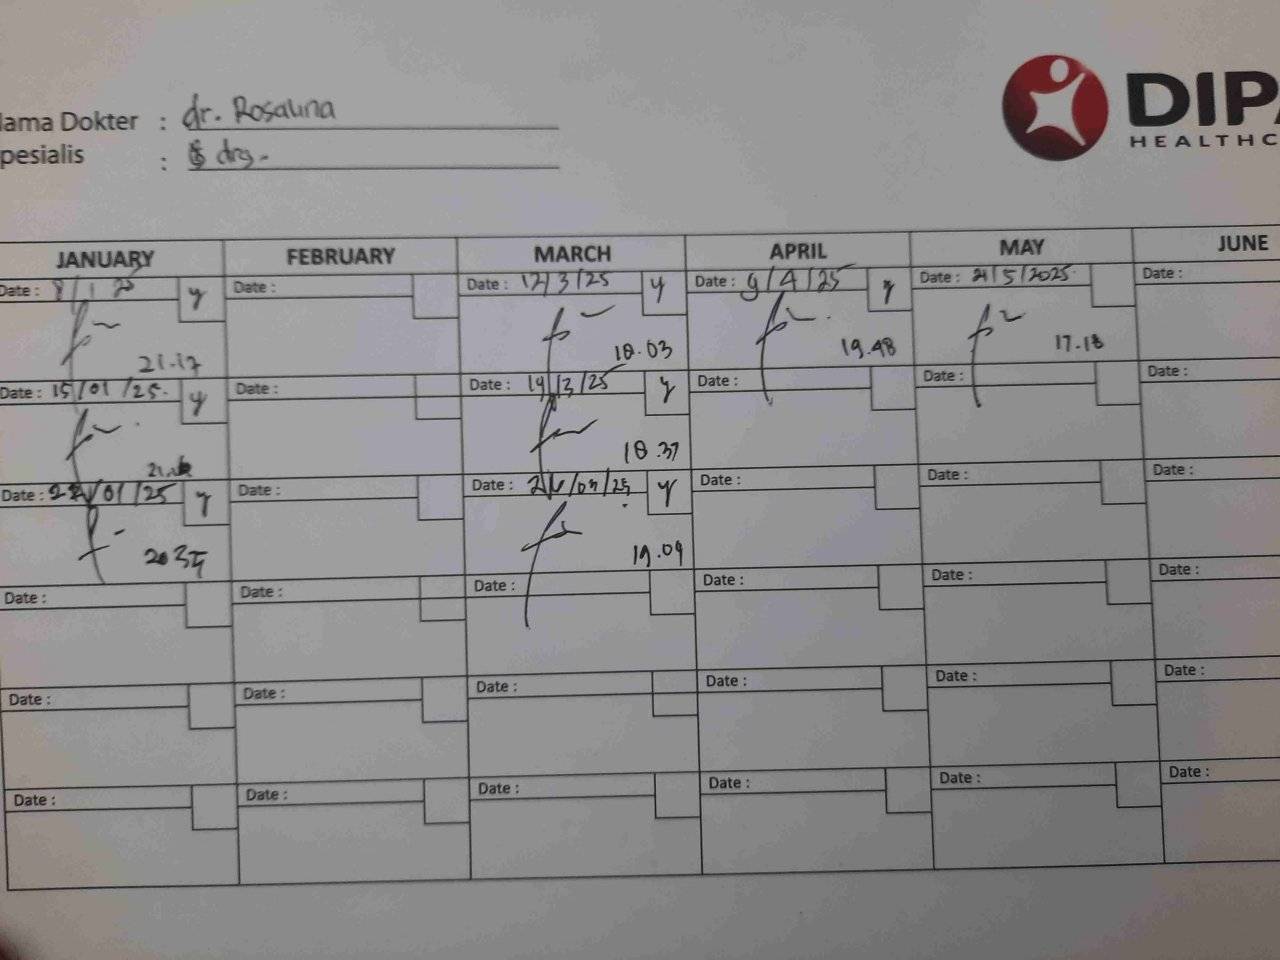 Nama Dokter : dr. Rosalina
Spesialis : drg.
DIPA
HEALTHC
JANUARY FEBRUARY MARCH APRIL MAY JUNE
Date : 8/1/25 y Date : Date : 12/3/25 y Date : 9/4/25 y Date : 21/5/2025 Date :
21.17 18.03 19.48 17.18
Date : 15/01/25. y Date : Date : 19/3/25 y Date : Date : Date :
18.37
Date : 22/01/25 y Date : Date : 26/03/25 y Date : Date : Date :
20 35 19.09
Date : Date : Date : Date : Date : Date :
Date : Date : Date : Date : Date : Date :
Date : Date : Date : Date : Date : Date :